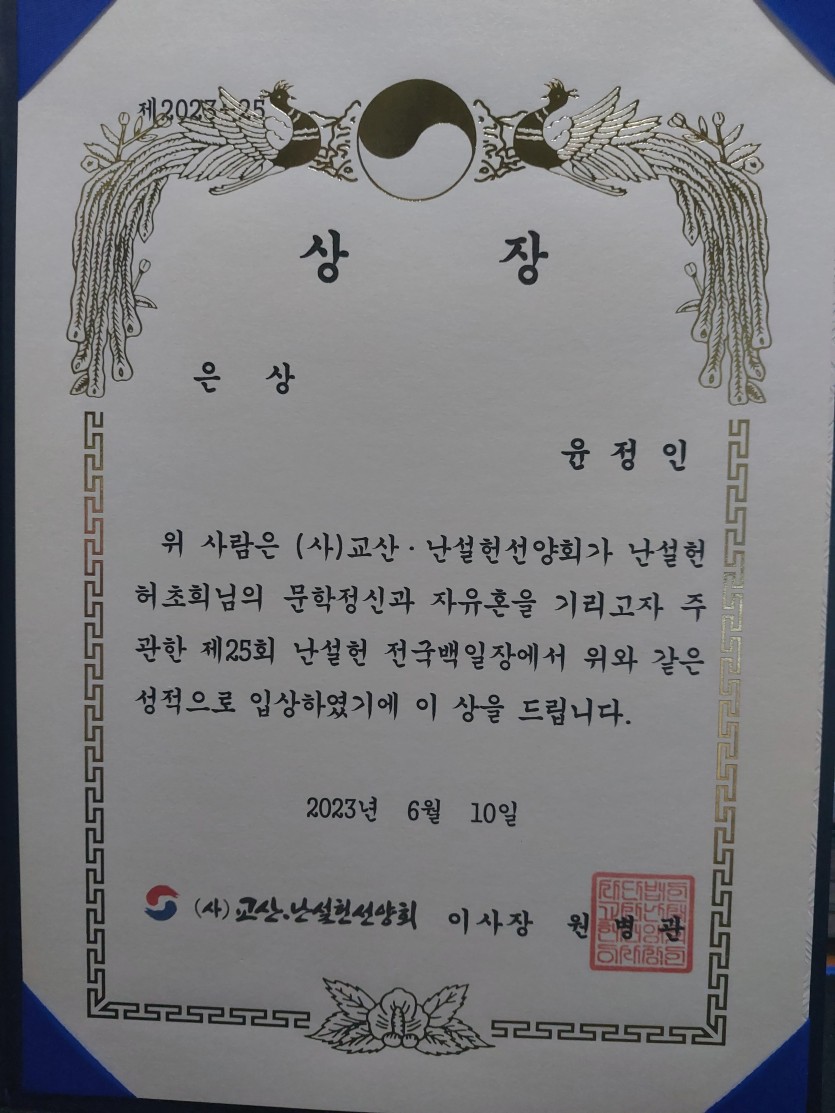 제2023-25
상 장
은 상
윤 정 인
위 사람은 (사)교산·난설헌선양회가 난설헌
허초희님의 문학정신과 자유혼을 기리고자 주
관한 제25회 난설헌 전국백일장에서 위와 같은
성적으로 입상하였기에 이 상을 드립니다.
2023년 6월 10일
(사)교산·난설헌선양회 이사장 원 병 관